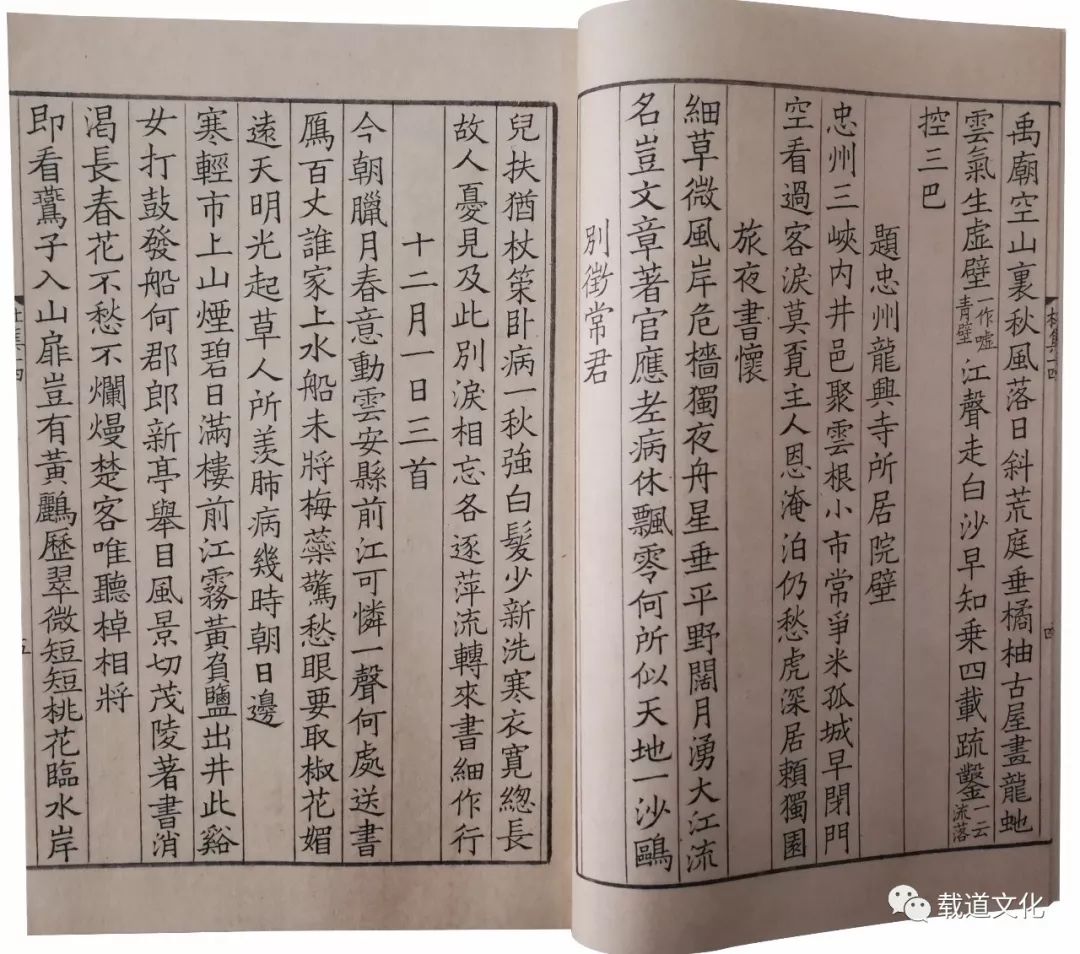 禹廟空山裏秋風落日斜荒庭垂橘柚古屋畫龍虵
雲氣生虛壁一作噓青壁江聲走白沙早知乗四載䟽鑿一云流落
控三巴
題忠州龍興寺所居院壁
忠州三峽内井邑聚雲根小市常爭米孤城早閉門
空看過客淚莫覓主人恩淹泊仍愁虎深居賴獨園
旅夜書懷
細草微風岸危檣獨夜舟星垂平野闊月湧大江流
名豈文章著官應老病休飄零何所似天地一沙鷗
別徵常君
兒扶猶杖策卧病一秋強白髮少新洗寒衣寛緫長
故人憂見及此別淚相忘各逐萍流轉來書細作行
十二月一日三首
今朝臘月春意動雲安縣前江可憐一聲何處送書
鴈百丈誰家上水船未將梅蘂驚愁眼要取椒花媚
遠天明光起草人所羡肺病幾時朝日邊
寒輕市上山煙碧日滿樓前江霧黃負鹽出井此谿
女打鼓發船何郡郎新亭舉目風景切茂陵著書消
渴長春花不愁不爛熳楚客唯聽棹相將
即看鷰子入山扉豈有黃鸝歷翠微短短桃花臨水岸
杜集十四
四
五
载道文化